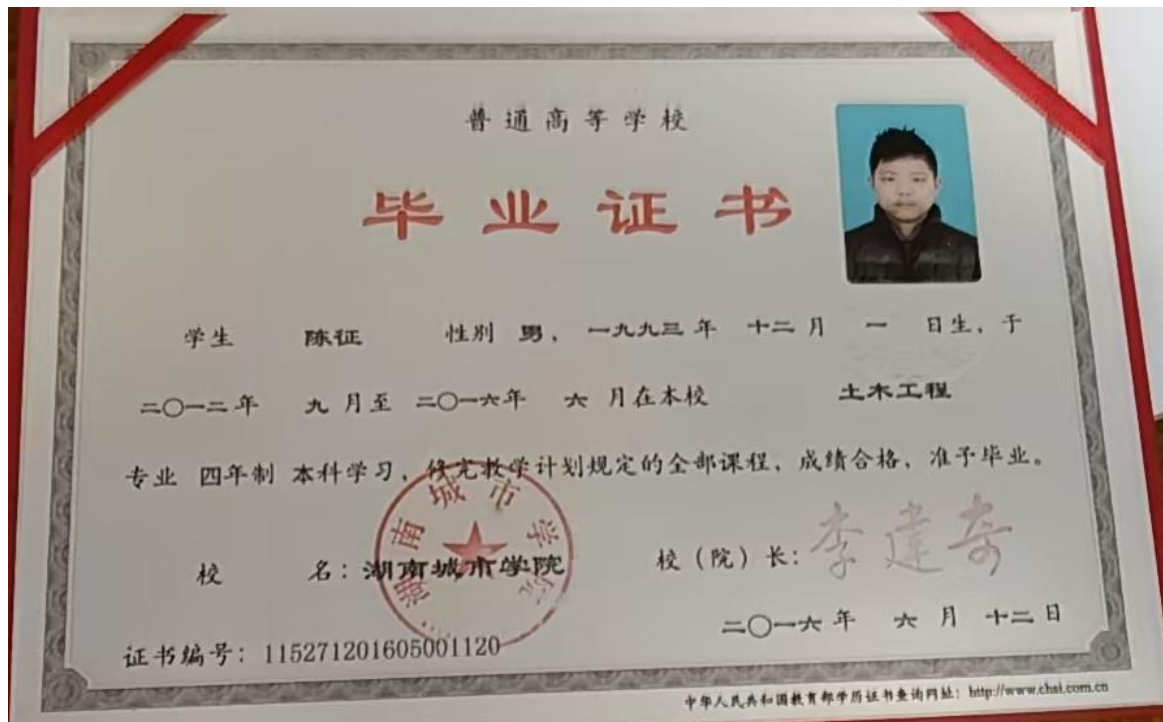 普通高等学校
毕业证书
学生 陈征 性别 男，一九九三年 十二月 一 日生，于
二〇一二年 九月至 二〇一六年 六月在本校 土木工程
专业 四年制 本科学习，修完教学计划规定的全部课程，成绩合格，准予毕业。
湖南城市学院
校 名：湖南城市学院 校（院）长：李建奇
二〇一六年 六月 十二日
证书编号：115271201605001120
中华人民共和国教育部学历证书查询网址：http://www.chsi.com.cn